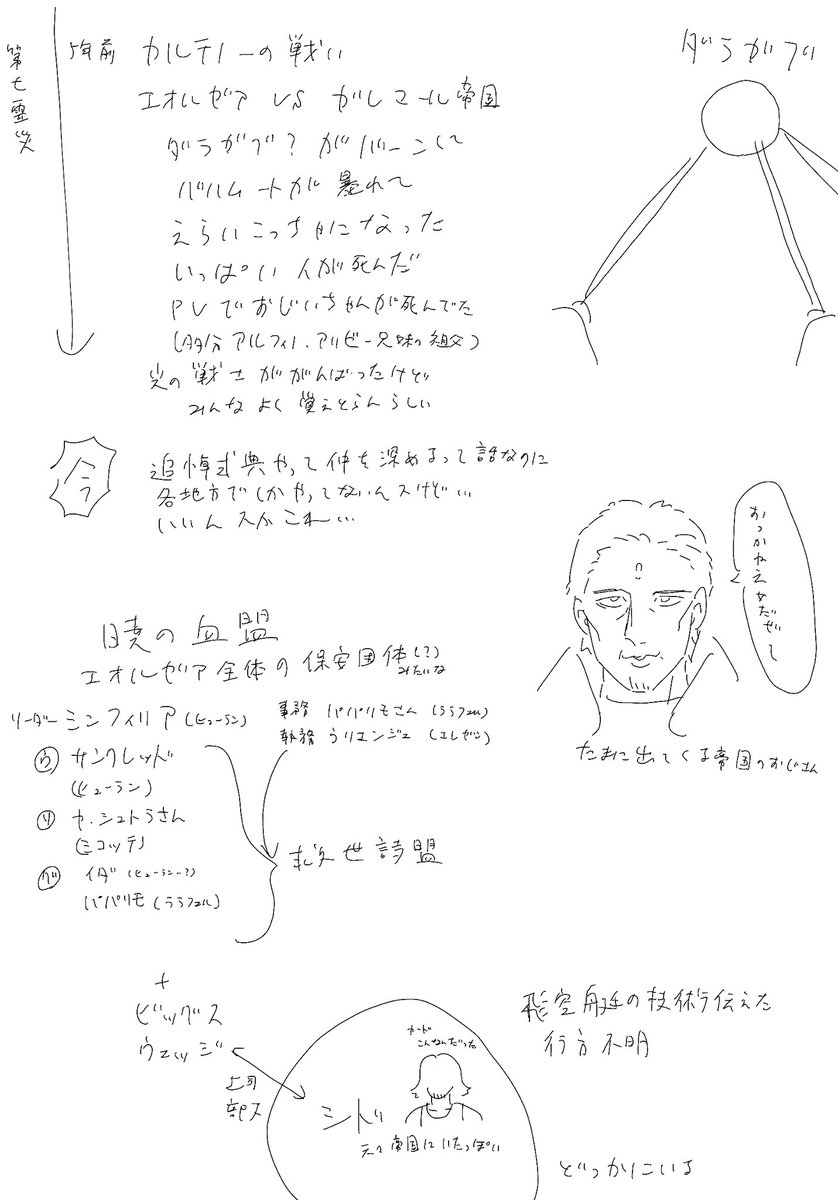 第七霊災
5年前 カルテノーの戦い
エオルゼア VS ガレマール帝国
ダラガブ？がバーンして
バハムートが暴れて
えらいこっちゃになった
いっぱい人が死んだ
PVでおじいちゃんが死んでた
(多分アルフィノ・アリゼー兄妹の祖父)
光の戦士ががんばったけど
みんなよく覚えとらんらしい
ダラガブ
今
追悼式典やって仲を深めるって話なのに
各地方でしかやってないんスけど…
いいんスかこれ…
おっかねえ女だぜ
たまに出てくる帝国のおじさん
暁の血盟
エオルゼア全体の保安団体(?)みたいな
リーダー ミンフィリア(ヒューラン)
事務 パパリモさん(ララフェル)
執務 ウリエンジェ(エレゼン)
ウ サンクレッド
(ヒューラン)
リ ヤ・シュトラさん
(ミコッテ)
グ イダ(ヒューラン?)
パパリモ(ララフェル)
救世詩盟
+
ビッグス
ウェッジ
上司
部下
シド
カード
こんなんだった
元々帝国にいたっぽい
飛空艇の技術伝えた
行方不明
どっかにいる